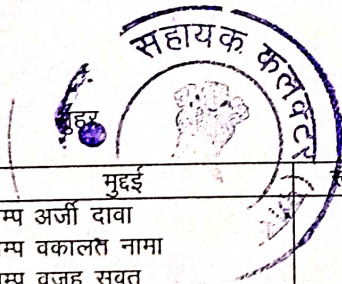 सहायक कलक्टर
मुहर
मुद्दई
म्प अर्जी दावा
म्प वकालत नामा
म्प वजह सबूत